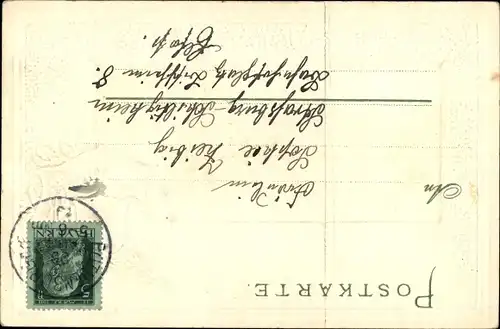 POSTKARTE.
An
Fräulein
Sophie Herbig
Strassburg-Schiltigheim
Bahnhofplatz Bischheim 8.
Elsass.
BAYERN
5
5